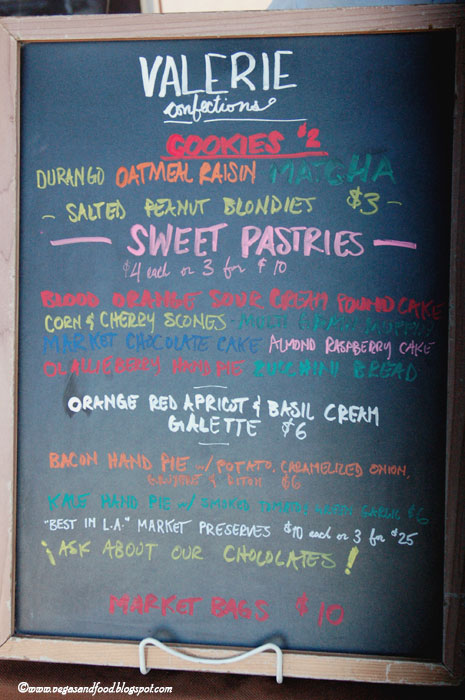 VALERIE
confections
COOKIES $2
DURANGO OATMEAL RAISIN MATCHA
- SALTED PEANUT BLONDIES $3 -
SWEET PASTRIES
$4 each or 3 for $10
BLOOD ORANGE SOUR CREAM POUND CAKE
CORN & CHERRY SCONES -
MARKET CHOCOLATE CAKE ALMOND RASPBERRY CAKE
OLALLIEBERRY HAND PIE ZUCCHINI BREAD
ORANGE RED APRICOT & BASIL CREAM
GALETTE $6
BACON HAND PIE w/ POTATO, CARAMELIZED ONION,
GRUYERE & $6
KALE HAND PIE w/ SMOKED TOMATO, GREEN GARLIC $6
"BEST IN L.A." MARKET PRESERVES $10 each or 3 for $25
¡ASK ABOUT OUR CHOCOLATES!
MARKET BAGS $10
©www.vegasandfood.blogspot.com